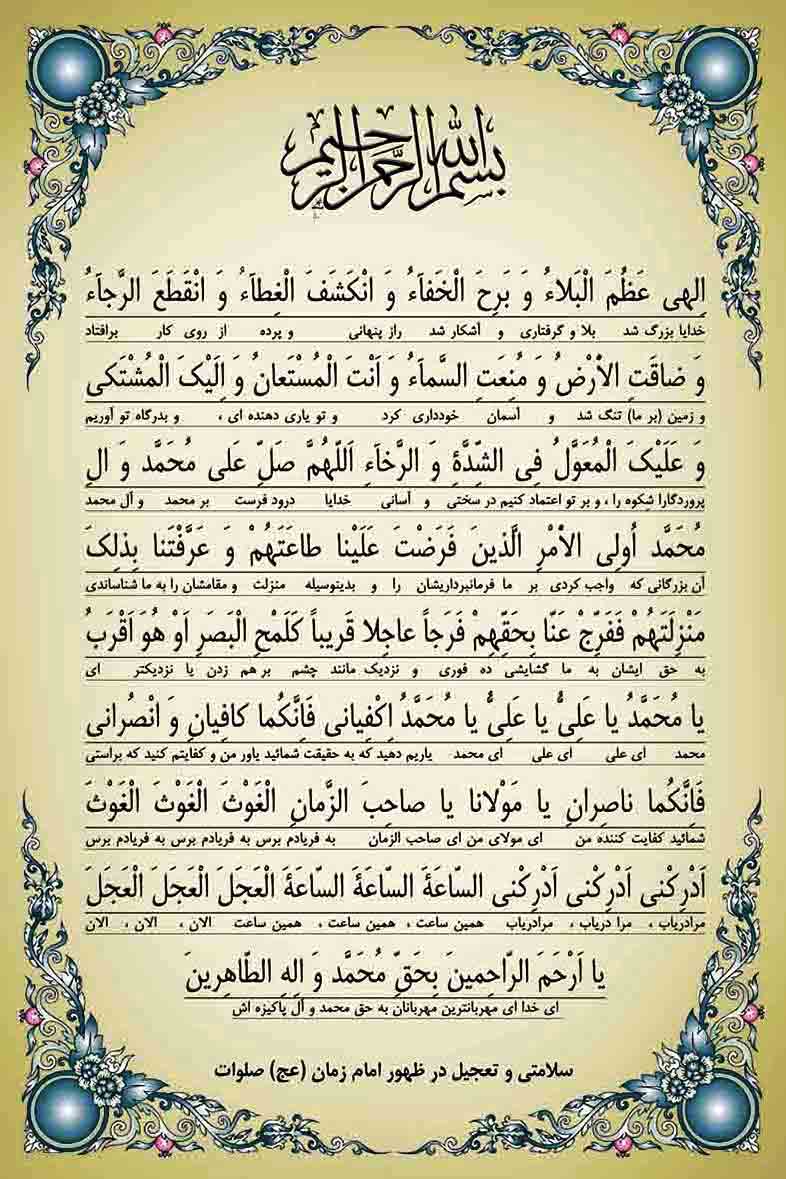 بسم الله الرحمن الرحيم
اِلهى عَظُمَ الْبَلاءُ وَ بَرِحَ الْخَفآءُ وَ انْكَشَفَ الْغِطآءُ وَ انْقَطَعَ الرَّجآءُ
خدایا بزرگ شد بلا و گرفتاری و آشکار شد راز پنهانی و پرده از روی کار برافتاد
وَ ضاقَتِ الاَْرْضُ وَ مُنِعَتِ السَّمآءُ وَ اَنْتَ الْمُسْتَعانُ وَ اِلَیْکَ الْمُشْتَکى
و زمین (بر ما) تنگ شد و آسمان خودداری کرد و تو یاری دهنده ای ، و بدرگاه تو آوریم
وَ عَلَیْکَ الْمُعَوَّلُ فِى الشِّدَّةِ وَ الرَّخآءِ اَللّهُمَّ صَلِّ عَلى مُحَمَّد وَ الِ
پروردگارا شکوه را ، و بر تو اعتماد کنیم در سختی و آسانی خدایا درود فرست بر محمد و آل محمد
مُحَمَّد اُولِى الاَْمْرِ الَّذینَ فَرَضْتَ عَلَیْنا طاعَتَهُمْ وَ عَرَّفْتَنا بِذلِکَ
آن بزرگانی که واجب کردی بر ما فرمانبرداریشان را و بدینوسیله منزلت و مقامشان را به ما شناساندی
مَنْزِلَتَهُمْ فَفَرِّجْ عَنّا بِحَقِّهِمْ فَرَجاً عاجِلا قَریباً کَلَمْحِ الْبَصَرِ اَوْ هُوَ اَقْرَبُ
به حق ایشان به ما گشایشی ده فوری و نزدیک مانند چشم بر هم زدن یا نزدیکتر ای
یا مُحَمَّدُ یا عَلِىُّ یا عَلِىُّ یا مُحَمَّدُ اِکْفِیانى فَاِنَّکُما کافِیانِ وَ انْصُرانى
محمد ای علی ای علی ای محمد یاریم دهید که به حقیقت شمائید یاور من و کفایتم کنید که براستی
فَاِنَّکُما ناصِرانِ یا مَوْلانا یا صاحِبَ الزَّمانِ الْغَوْثَ الْغَوْثَ الْغَوْثَ
شمائید کفایت کننده من ای مولای من ای صاحب الزمان به فریادم برس به فریادم برس به فریادم برس
اَدْرِکْنى اَدْرِکْنى اَدْرِکْنى السّاعَةَ السّاعَةَ السّاعَةَ الْعَجَلَ الْعَجَلَ الْعَجَلَ
مرادریاب ، مرا دریاب ، مرادریاب همین ساعت ، همین ساعت ، همین ساعت الان ، الان ، الان
یا اَرْحَمَ الرّاحِمینَ بِحَقِّ مُحَمَّد وَ الِهِ الطّاهِرینَ
ای خدا ای مهربانترین مهربانان به حق محمد و آل پاکیزه اش
سلامتی و تعجیل در ظهور امام زمان (عج) صلوات